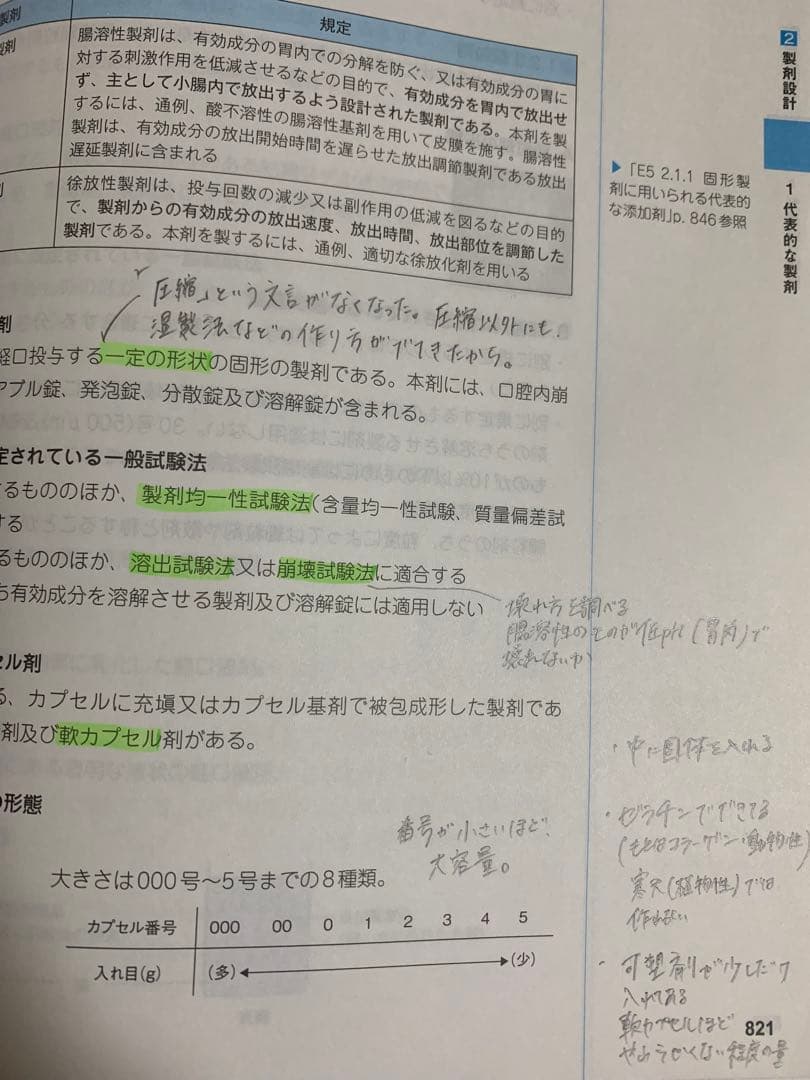 製剤
規定
製剤
腸溶性製剤は、有効成分の胃内での分解を防ぐ、又は有効成分の胃に
対する刺激作用を低減させるなどの目的で、有効成分を胃内で放出せ
ず、主として小腸内で放出するよう設計された製剤である。本剤を製
するには、通例、酸不溶性の腸溶性基剤を用いて皮膜を施す。腸溶性
製剤は、有効成分の放出開始時間を遅らせた放出調節製剤である放出
遅延製剤に含まれる
剤
徐放性製剤は、投与回数の減少又は副作用の低減を図るなどの目的
で、製剤からの有効成分の放出速度、放出時間、放出部位を調節した
製剤である。本剤を製するには、通例、適切な徐放化剤を用いる
「圧縮」という文言がなくなった。圧縮以外にも、
湿製法などの作り方がでてきたから。
剤
経口投与する一定の形状の固形の製剤である。本剤には、口腔内崩
アブル錠、発泡錠、分散錠及び溶解錠が含まれる。
定されている一般試験法
するもののほか、製剤均一性試験法(含量均一性試験、質量偏差試
する
るもののほか、溶出試験法又は崩壊試験法に適合する
ち有効成分を溶解させる製剤及び溶解錠には適用しない
壊れ方を調べる
腸溶性のものが低pH(胃内)で
壊れないか
セル剤
る、カプセルに充塡又はカプセル基剤で被包成形した製剤であ
剤及び軟カプセル剤がある。
の形態
番号が小さいほど、
大容量。
大きさは000号～5号までの8種類。
カプセル番号 000 00 0 1 2 3 4 5
入れ目(g) (多) (少)
2 製剤設計
1 代表的な製剤
▶「E5 2.1.1 固形製
剤に用いられる代表的
な添加剤」p. 846参照
・中に固体を入れる
・ゼラチンでできてる
(もとはコラーゲン・動物性)
寒天(植物性)では
作れない
・可塑剤が少しだけ
入れてある
軟カプセルほど
やわらかくない程度の量
821